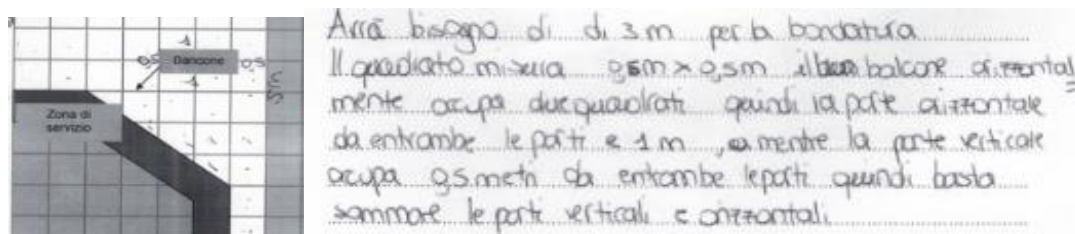 1
0,5 Bancone 0,5
1
Zona di
servizio
Arrà bisogno di di 3 m per la bordatura
Il quadrato misura 0,5m x 0,5m il balcone orizzontal
mente occupa due quadrati quindi la parte orizzontale
da entrambe le parti è 1 m , mentre la parte verticale
occupa 0,5 metri da entrambe le parti quindi basta
sommare le parti verticali e orizzontali.